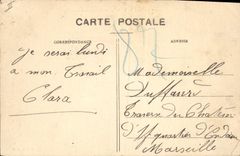 CARTE POSTALE
CORRESPONDANCE
ADRESSE
je serai lundi
à mon Travail
Clara
Mademoiselle
Duffaur
Traverse du Chateau
d'If quartier d'Endoume
Marseille